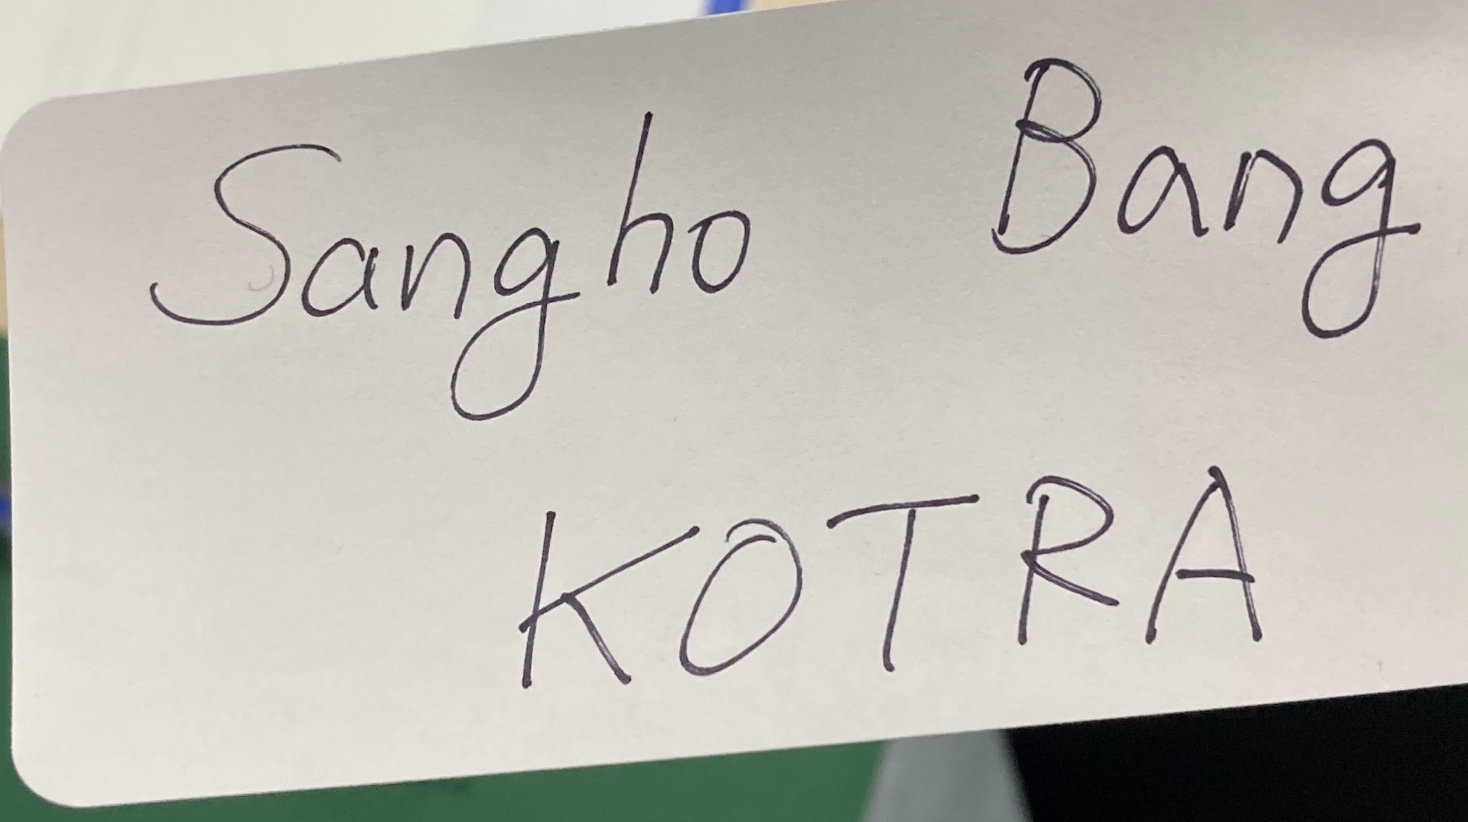 Sangho Bang
KOTRA